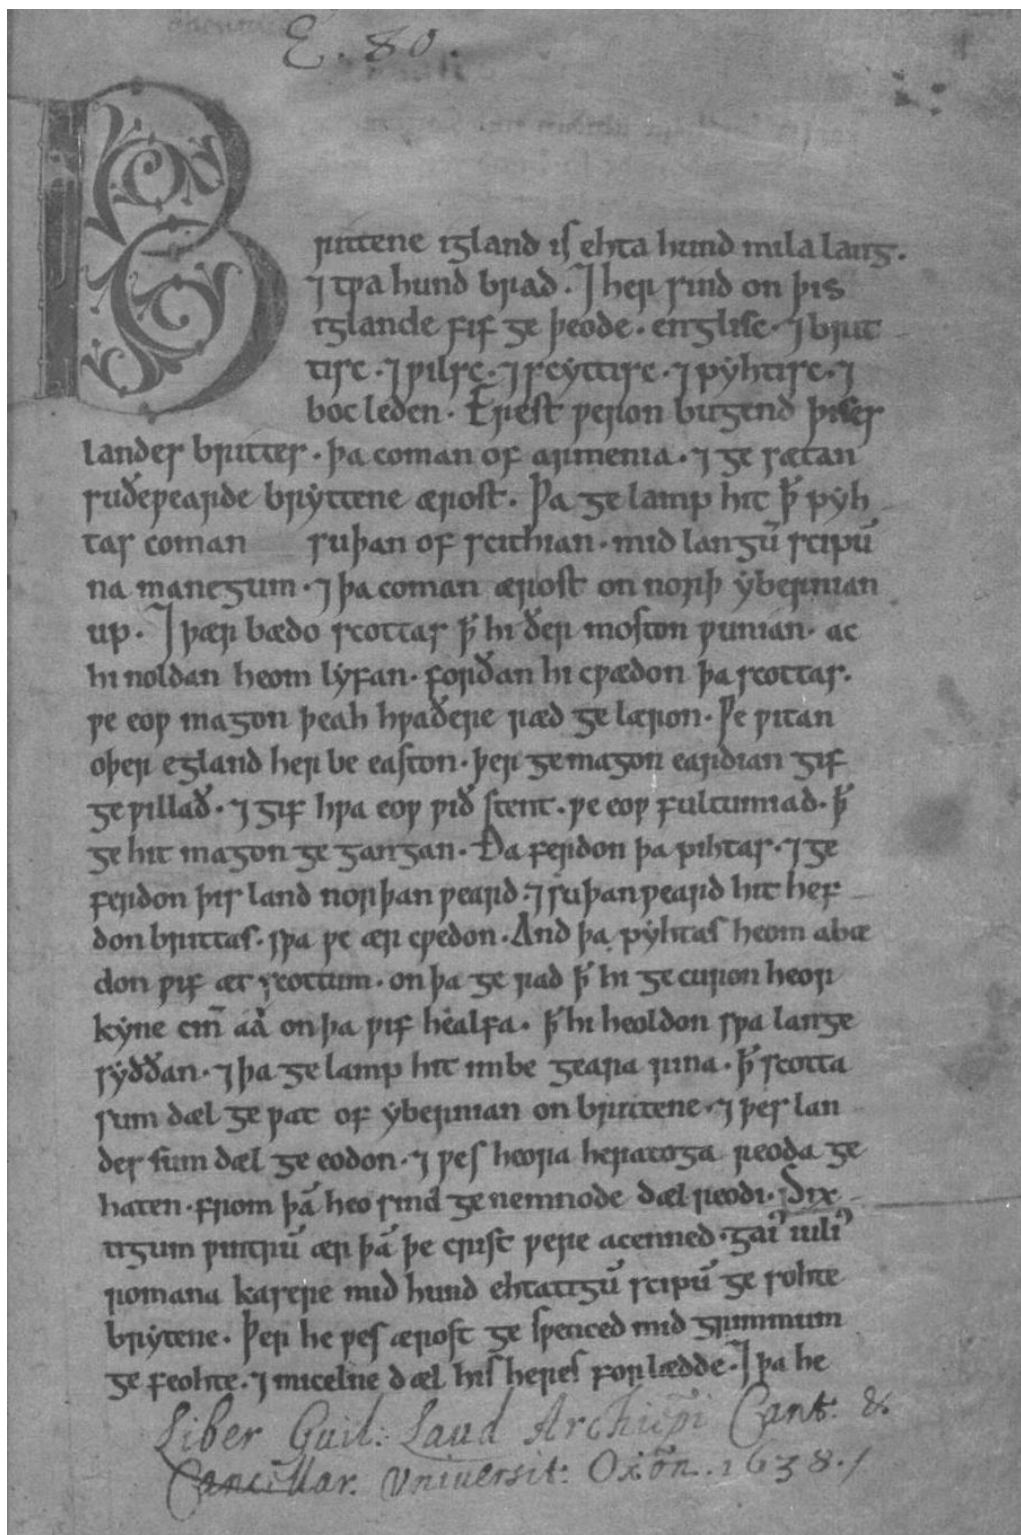 E. 80.
Brittene igland is ehta hund mila lang.
⁊ tƿa hund brad. ⁊ her sind on þis
iglande fif ge þeode. englisc. ⁊ brit
tisc. ⁊ ƿilsc. ⁊ scyttisc. ⁊ pyhtisc. ⁊
boc leden. Erest ƿeron bugend þises
landes brittes. þa coman of armenia. ⁊ ge sætan
suðeƿearde bryttene ærost. Þa ge lamp hit ꝥ pyh
tas coman suþan of scithian. mid langū scipū
na manegum. ⁊ þa coman ærost on norþ ybernian
up. ⁊ þær bædo scottas ꝥ hi ðer moston ƿunian. ac
hi noldan heom lyfan. forðan hi cƿædon þa scottas.
ƿe eoƿ magon þeah hƿaðere ræd ge læron. Ƿe ƿitan
oþer egland her be easton. þer ge magon eardian gif
ge ƿillað. ⁊ gif hƿa eoƿ ƿið stent. ƿe eoƿ fultumiad. ꝥ
ge hit magon ge gangan. Ða ferdon þa pihtas. ⁊ ge
ferdon þis land norþan ƿeard. ⁊ suþanƿeard hit hef
don brittas. sƿa ƿe ær cƿedon. And þa pyhtas heom abæ
don ƿif æt scottum. on þa ge rad ꝥ hi ge curon heor
kyne cin̄ aa on þa ƿif healfa. ꝥ hi heoldon sƿa lange
syððan. ⁊ þa ge lamp hit imbe geara rina. ꝥ scotta
sum dæl ge ƿat of ybernian on brittene. ⁊ þes lan
des sum dæl ge eodon. ⁊ ƿes heora heratoga reoda ge
haten. from þā heo sind ge nemnode dæl reodi. Six
tigum ƿintrū ær þā þe crist ƿere acenned. gai᾽ iuli᾽
romana kasere mid hund ehtatigū scipū ge sohte
brytene. Þer he ƿes ærost ge sƿenced mid grimmum
ge feohte. ⁊ micelne dæl his heres forlædde. ⁊ þa he
Liber Guil: Laud Archiep̄i Cant: &
Cancellar. Vniversit: Oxōn. 1638./